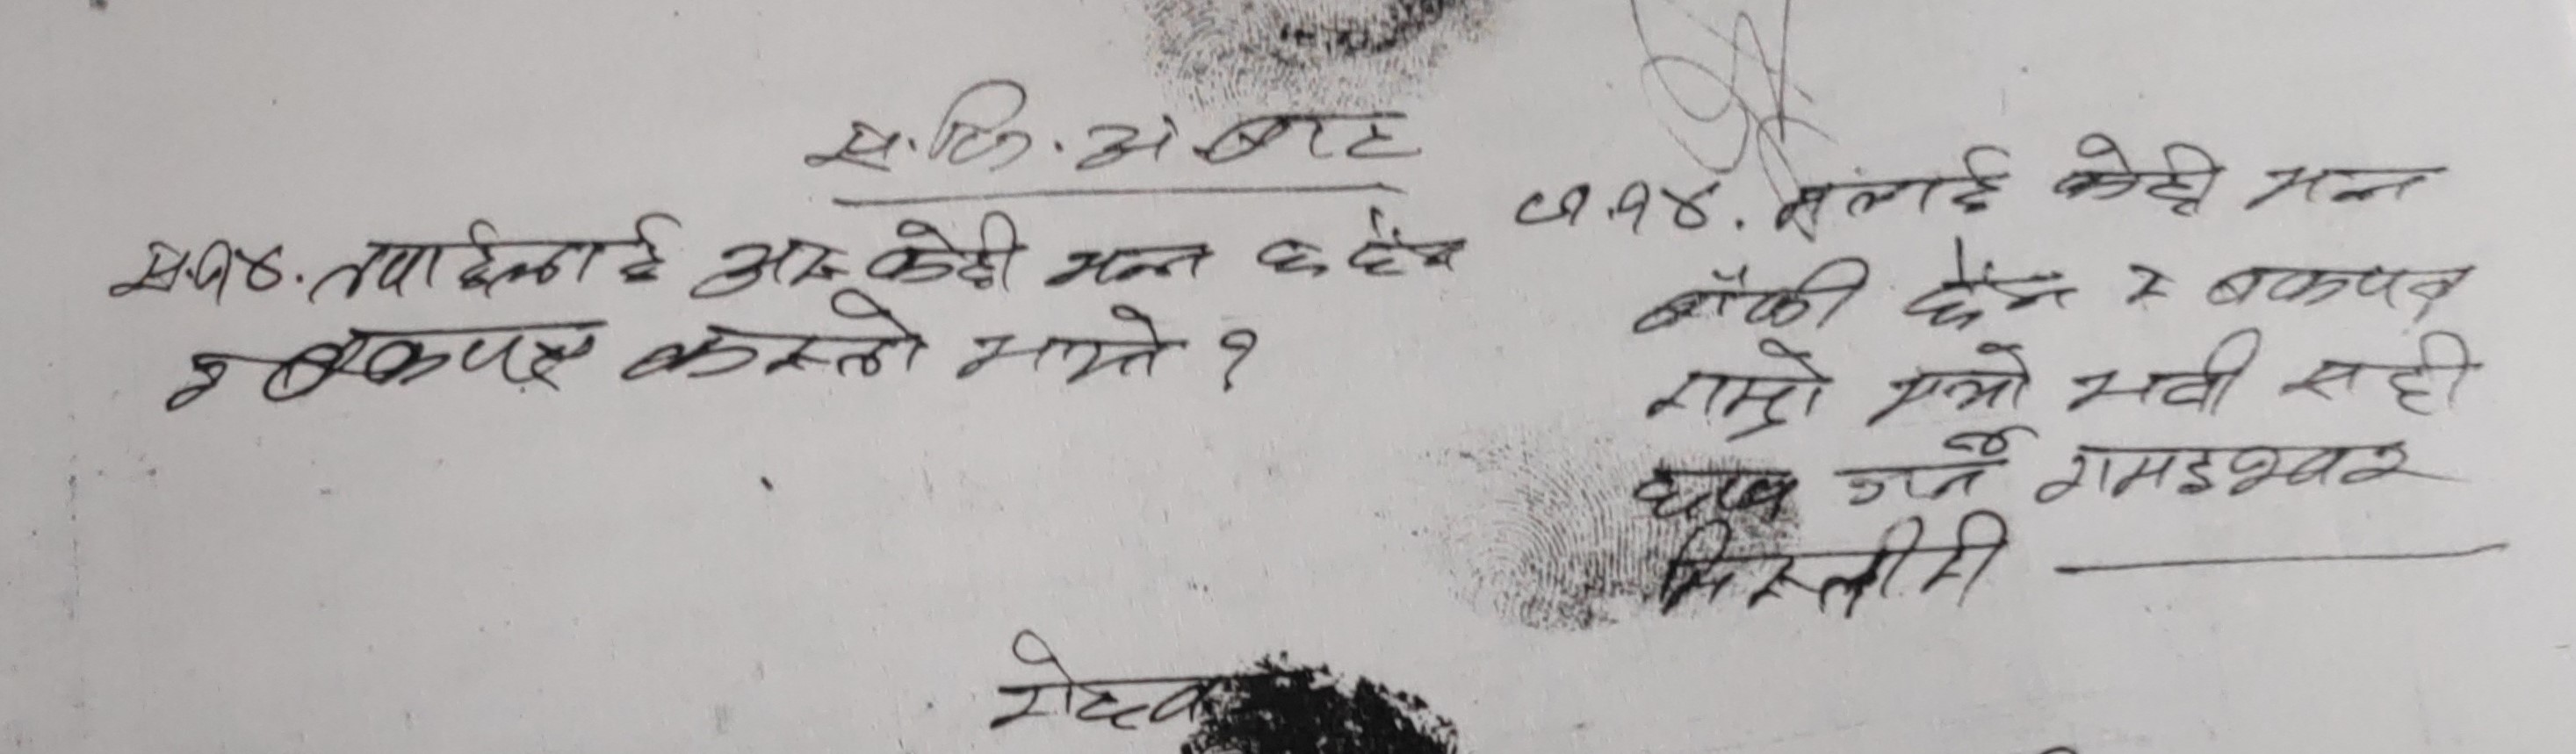 स.जि.अ बाट
स.१४. तपाईलाई अरु केही भन्न छ छैन
र बकपत्र कस्तो भयो ?
ज.१४. मलाई केही भन्न
बाँकी छैन र बकपत्र
राम्रो भयो भनी सही
छाप गर्ने रामईश्वर
मिस्त्री
रोहवर